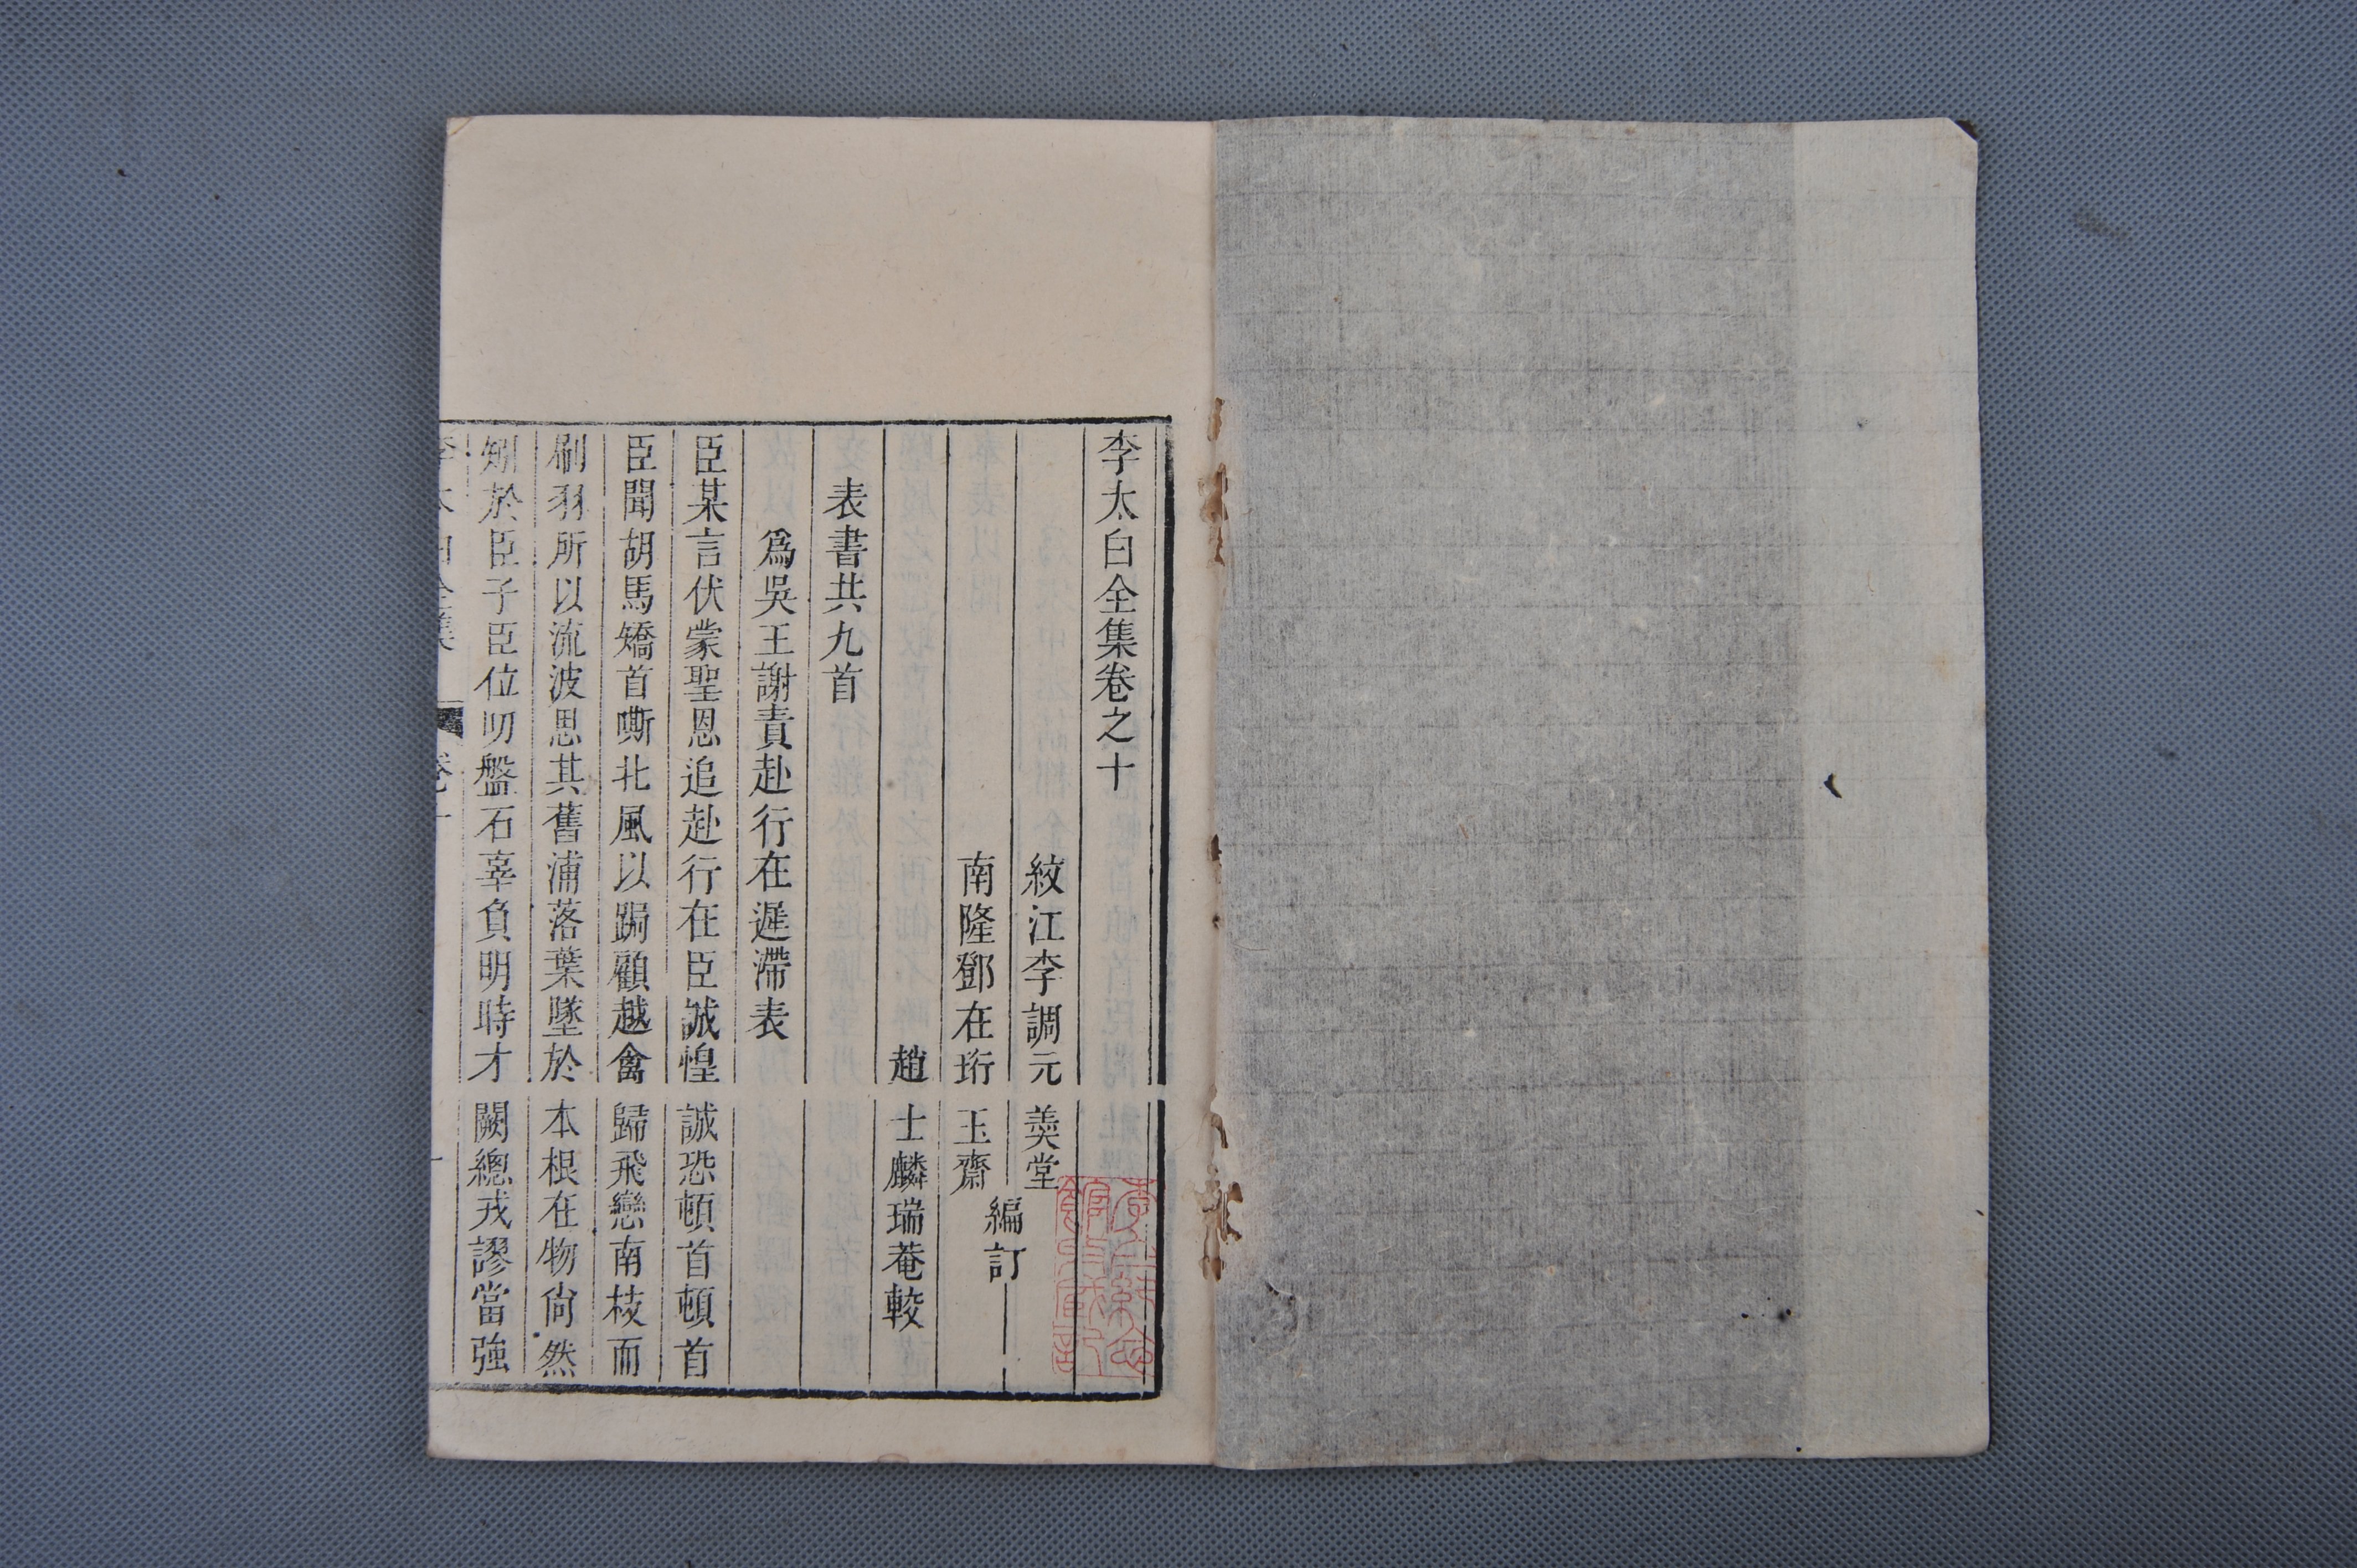 李太白全集卷之十
紋江李調元 羮堂
南隆鄧在珩 玉齋
編訂
趙 士麟瑞菴較
表書共九首
爲吳王謝責赴行在遲滯表
臣某言伏蒙聖恩追赴行在臣誠惶誠恐頓首頓首
臣聞胡馬矯首嘶北風以跼顧越禽歸飛戀南枝而
刷羽所以流波思其舊浦落葉墜於本根在物尙然
矧於臣子臣位叨盤石辜負明時才闕總戎謬當強
李太白全集 卷十 一